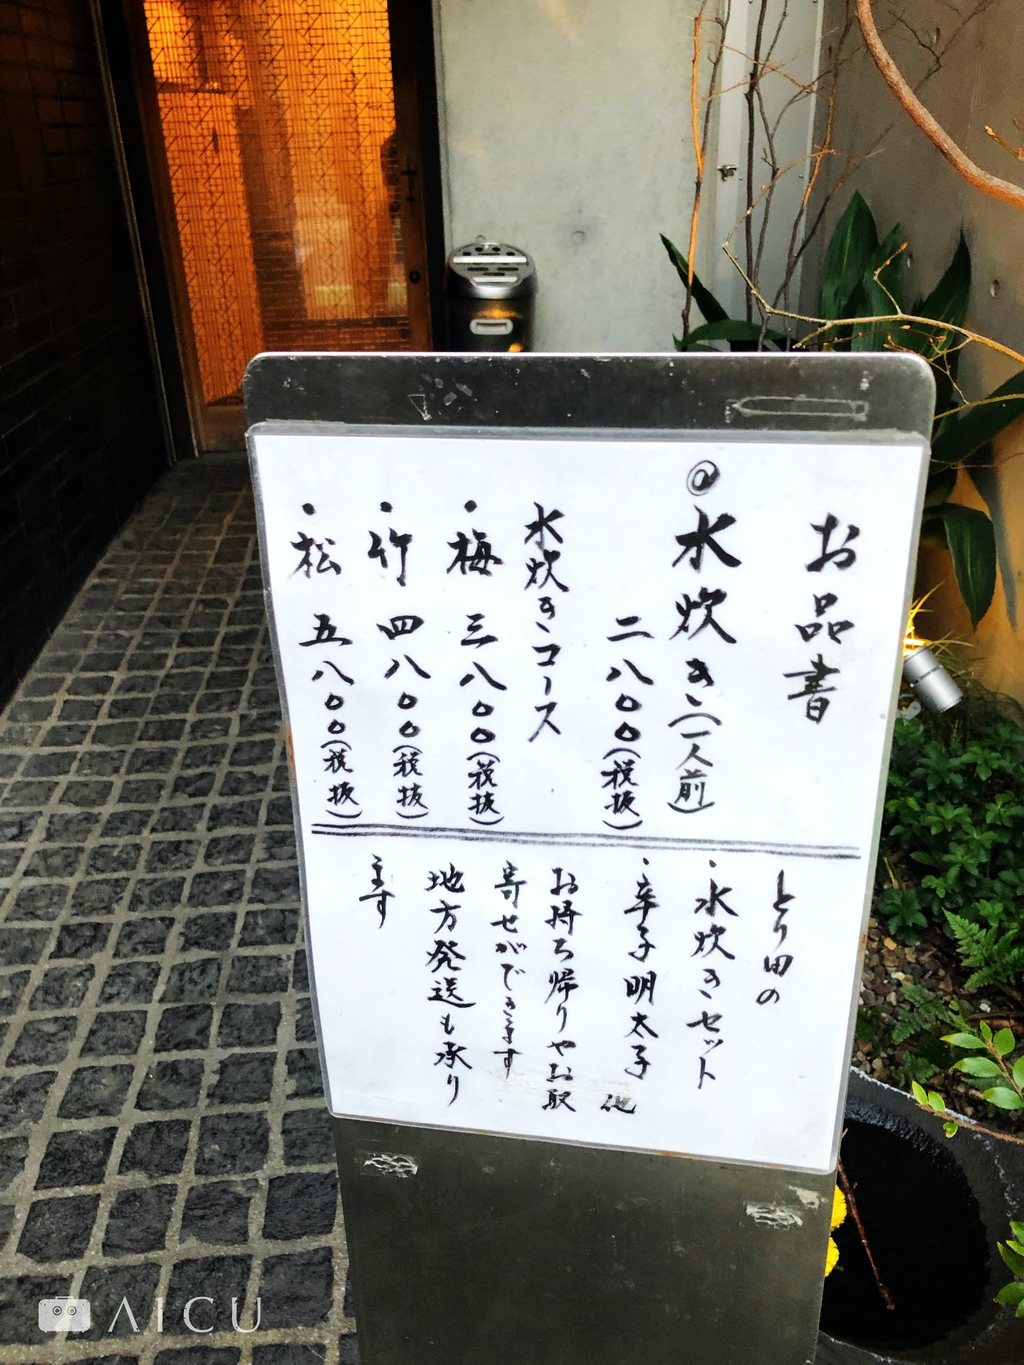 お品書
@水炊き(一人前)
二八〇〇(税抜)
水炊きコース
・梅 三八〇〇(税抜)
・竹 四八〇〇(税抜)
・松 五八〇〇(税抜)
とり田の
・水炊きセット
・辛子明太子 他
お持ち帰りやお取
寄せができます
地方発送も承り
ます
AICU